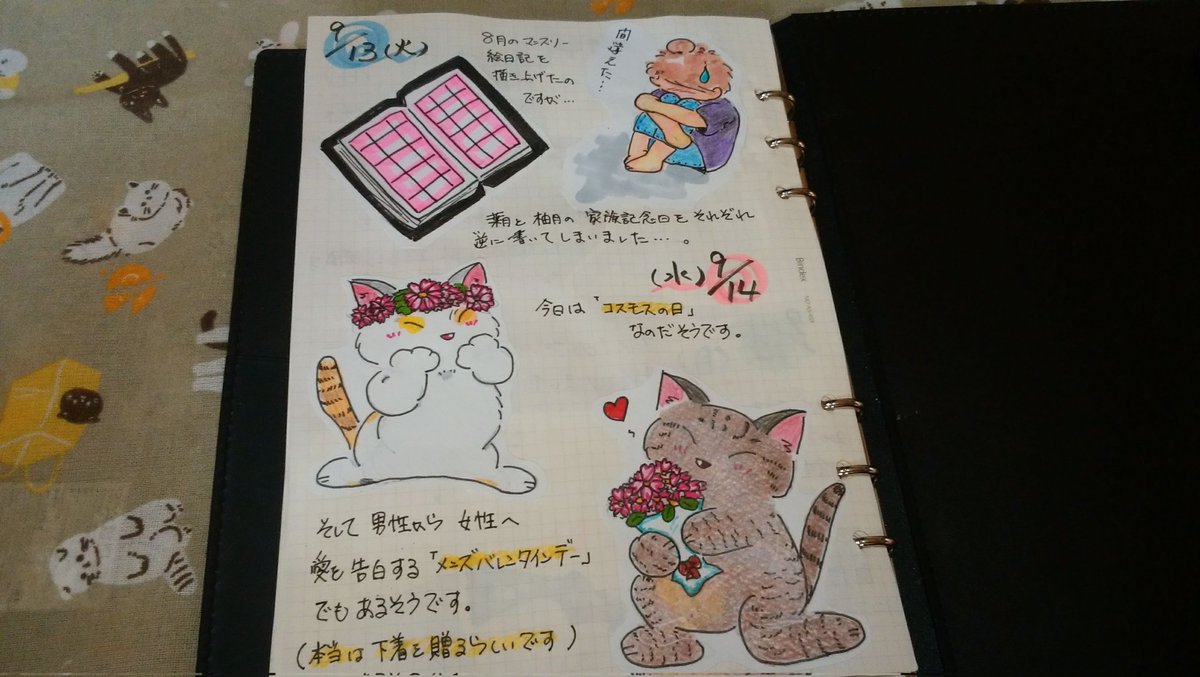 9/13(火)
8月のマンスリー
絵日記を
描き上げたの
ですが…
間違えた…
葉月と柚月の家族記念日をそれぞれ
逆に書いてしまいました…。
(水)9/14
今日は「コスモスの日」
なのだそうです。
そして男性から女性へ
愛を告白する「メンズバレンタインデー」
でもあるそうです。
(本当は下着を贈るらしいです)
Bindex